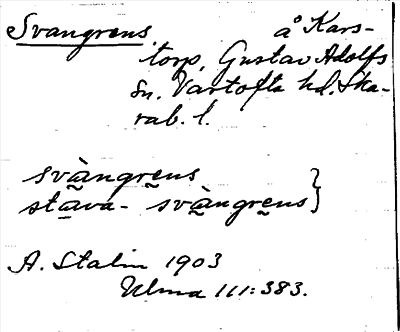 Svangrens å Kars-
torp, Gustav Adolfs
sn. Vartofta hd. Ska-
rab. l.
svàngrens
stava- svàngrens}
A. Stalin 1903
Ulma 111:383.